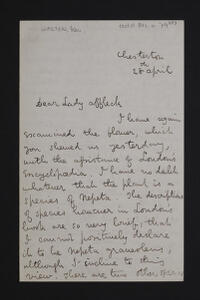 Chesterton
28 April
Dear Lady Affleck
I have again
examined the flower, which
you shewed us yesterday,
with the assistance of Loudon's
Encyclopædia. I have no doubt
whatever that the plant is a
species of Nepeta. The description
of species however in Loudon's
book are so very brief, that
I cannot positively declare
it to be Nepeta graveolens,
although I incline to this
view. There are two other